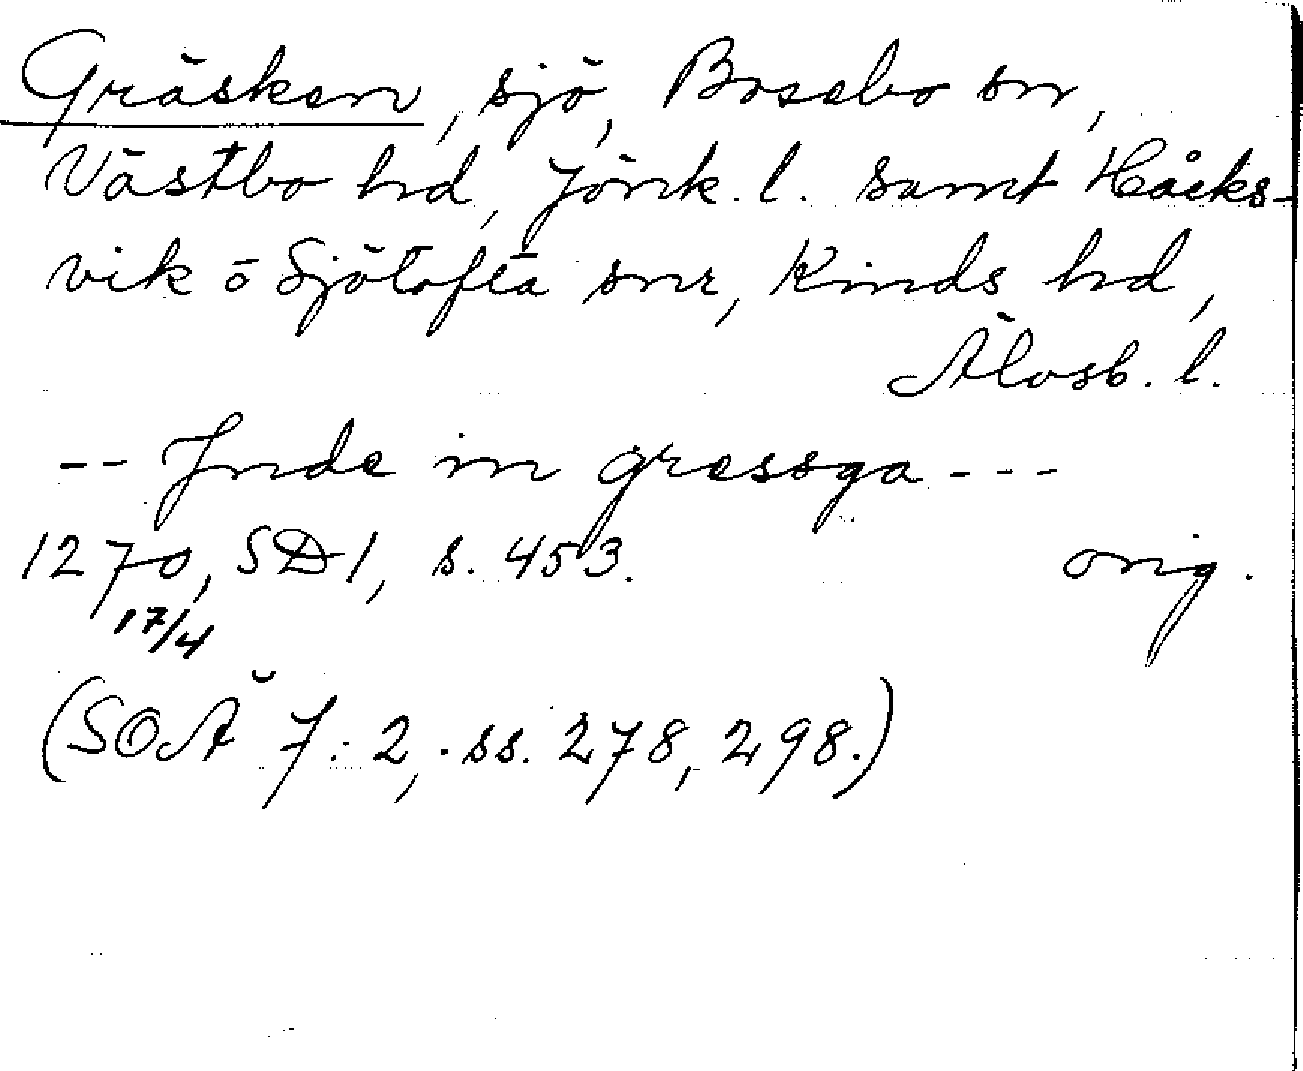 Gräsken, sjö, Bosebo sn,
Västbo hd, Jönk. l. samt Håcks-
vik o Sjötofta snr, Kinds hd,
Älvsb. l.
-- Jnde in gressga ---
1270, SD 1, s. 453. orig.
17/4
(SOÄ 7:2, ss. 278, 298.)